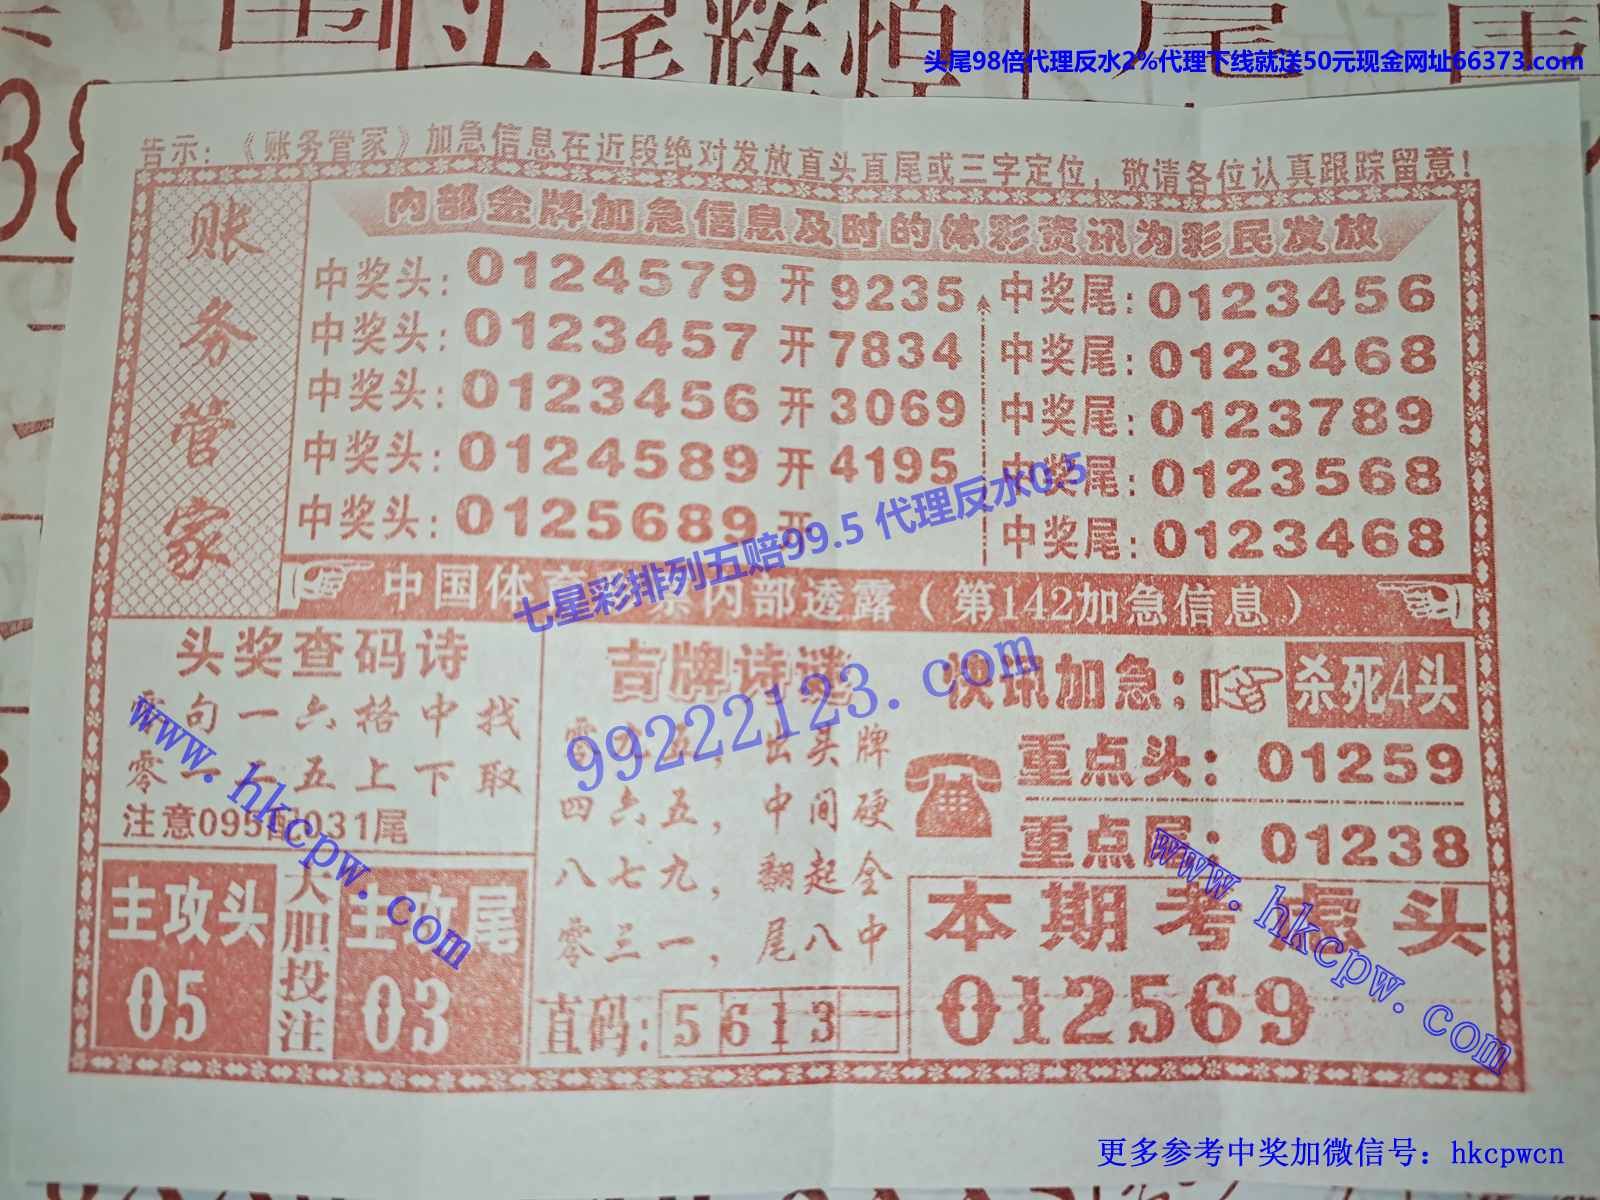 尾辉煌
头尾98倍代理反水2%代理下线就送50元现金网址66373.com
38
告示：《账务管家》加急信息在近段绝对发放直头直尾或三字定位，敬请各位认真跟踪留意！
账务管家
内部金牌加急信息及时的体彩资讯为彩民发放
中奖头：0124579开9235 中奖尾：0123456
中奖头：0123457开7834 中奖尾：0123468
中奖头：0123456开3069 中奖尾：0123789
中奖头：0124589开4195 中奖尾：0123568
中奖头：0125689开 中奖尾：0123468
七星彩排列五赔99.5 代理反水0.5
中国体育彩票内部透露（第142加急信息）
头奖查码诗
零句一六格中找
零二一五上下取
注意095配031尾
主攻头
05
大胆投注
主攻尾
03
吉牌诗谜
零九五，出头牌
四六五，中间硬
八七九，翻起全
零三一，尾八中
直码：5 6 1 3
快讯加急：杀死4头
重点头：01259
重点尾：01238
本期考虑头
012569
99222123.com
www.hkcpw.com
www.hkcpw.com
更多参考中奖加微信号：hkcpwcn